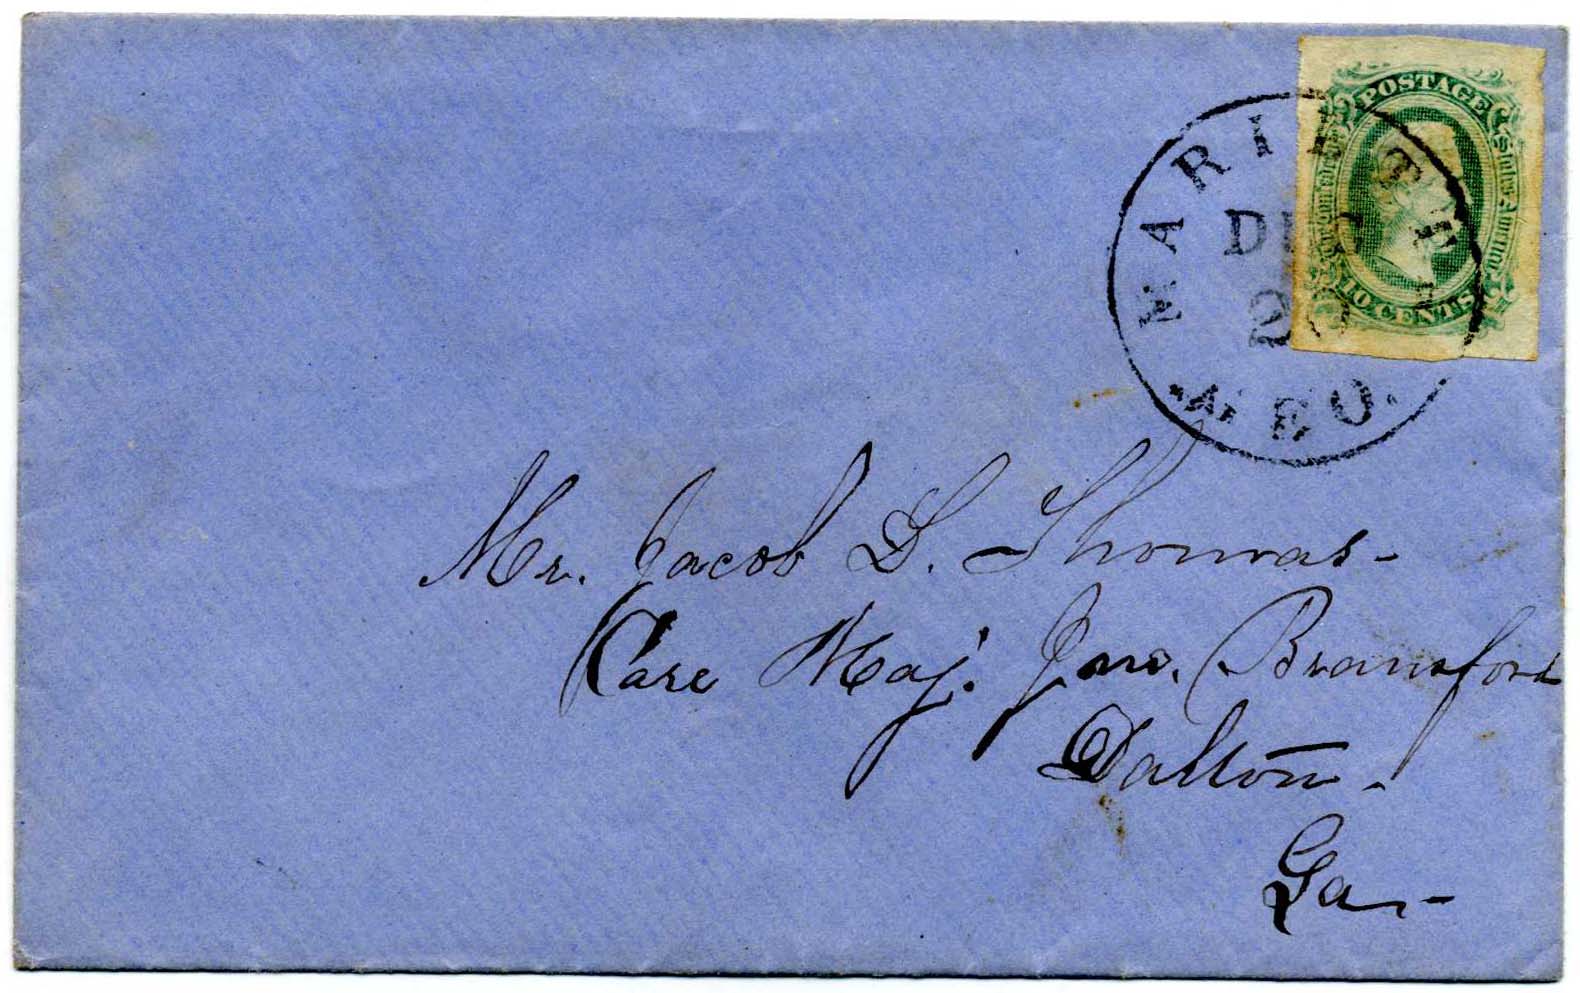 POSTAGE
Confederate States America
10 CENTS
MARIETTA
DEC
GEO.
Mr. Jacob S. Thomas-
Care Maj. Jno. Bransford
Dalton.
Ga-